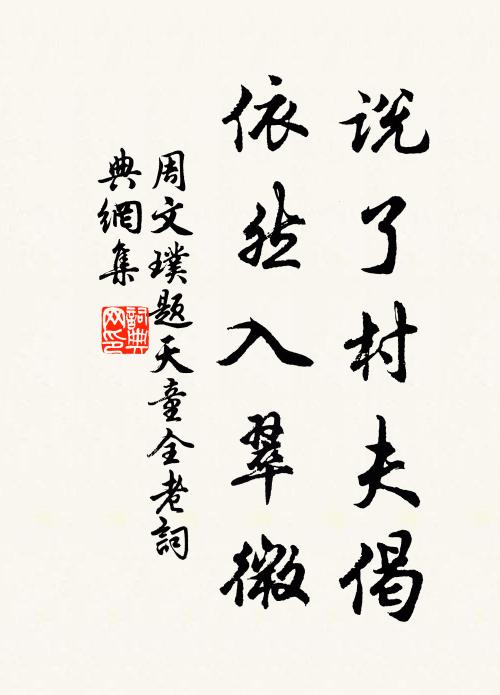 说了村夫偈
依然入翠微
周文璞题天童全老詞
典網集
詞典
网印